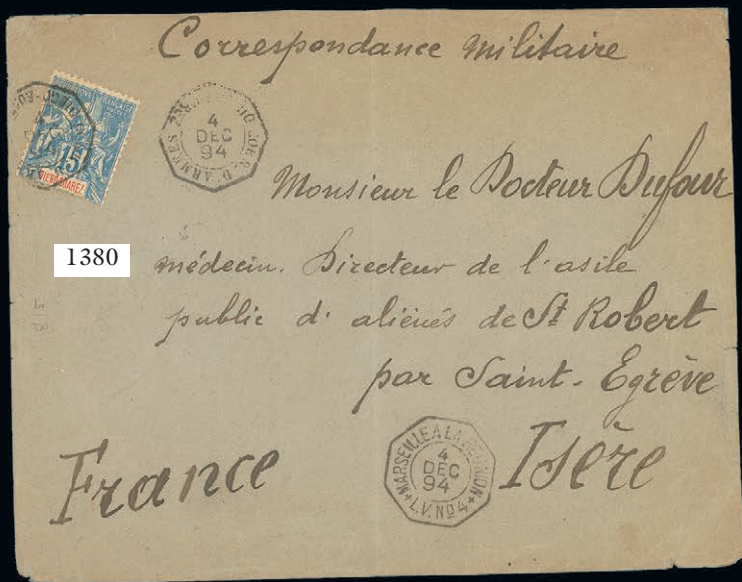 Correspondance Militaire
15
4
DEC
94
D'ARMÉES
1380
Monsieur le Docteur Dufour
médecin. Directeur de l'asile
public d'aliénés de St Robert
par Saint-Egrève
Isère
France
MARSEILLE A LA RÉUNION
4
DEC
94
L.V. No 4